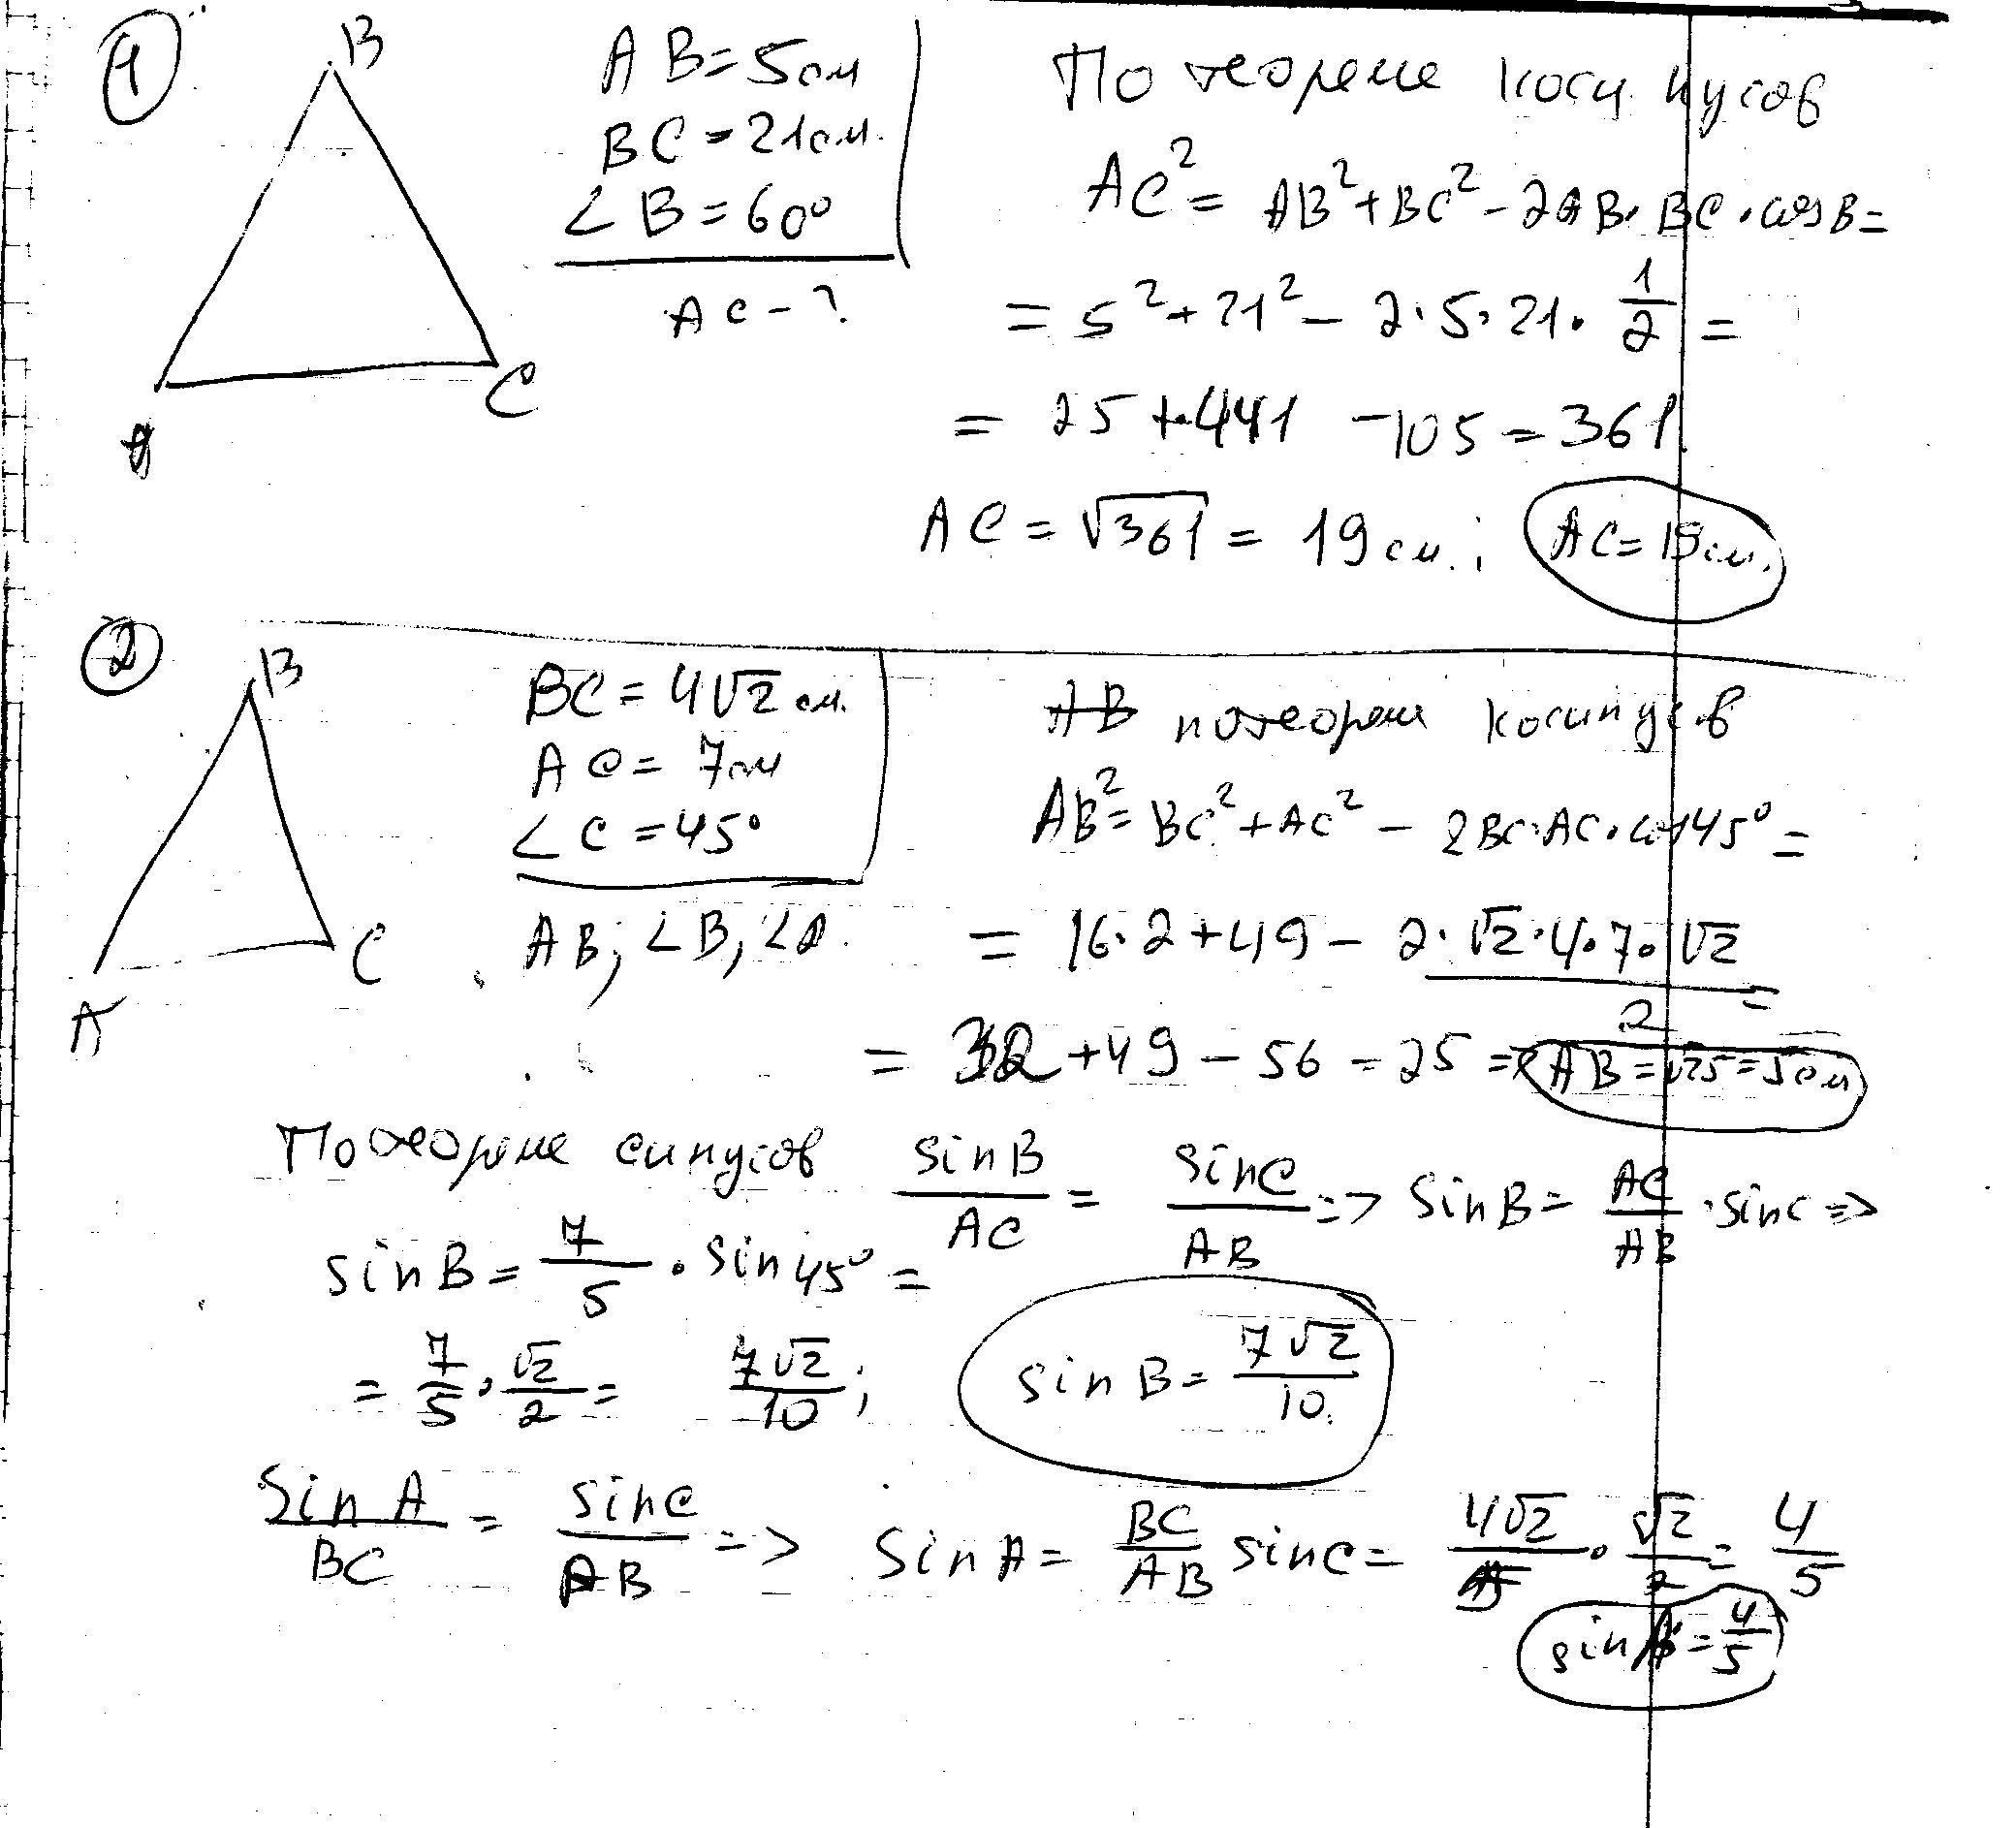 1
B
A
C
AB = 5 см
BC = 21 см.
∠B = 60°
AC - ?
По теореме косинусов
AC² = AB² + BC² - 2AB · BC · cos B =
= 5² + 21² - 2 · 5 · 21 · 1/2 =
= 25 + 441 - 105 = 361.
AC = √361 = 19 см.; AC = 19 см.
2
B
A
C
BC = 4√2 см.
AC = 7 см
∠C = 45°
AB; ∠B, ∠A.
AB по теореме косинусов
AB² = BC² + AC² - 2BC · AC · cos 45° =
= 16 · 2 + 49 - 2 · √2 · 4 · 7 · √2 / 2 =
= 32 + 49 - 56 = 25 => AB = √25 = 5 см
По теореме синусов sin B / AC = sin C / AB => sin B = AC / AB · sin C =>
sin B = 7/5 · sin 45° =
= 7/5 · √2/2 = 7√2/10; sin B = 7√2/10.
sin A / BC = sin C / AB => sin A = BC / AB sin C = 4√2/5 · √2/2 = 4/5
sin A = 4/5